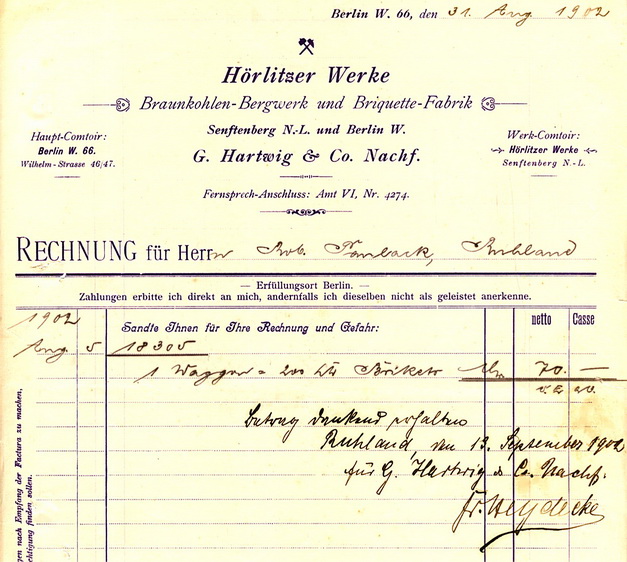 Berlin W. 66, den 31. Aug 1902
Hörlitzer Werke
Braunkohlen-Bergwerk und Briquette-Fabrik
Senftenberg N.-L. und Berlin W.
G. Hartwig & Co. Nachf.
Haupt-Comtoir:
Berlin W. 66.
Wilhelm-Strasse 46/47.
Werk-Comtoir:
Hörlitzer Werke
Senftenberg N.-L.
Fernsprech-Anschluss: Amt VI, Nr. 4274.
RECHNUNG für Herrn Rob. Ruhland
— Erfüllungsort Berlin. —
Zahlungen erbitte ich direkt an mich, andernfalls ich dieselben nicht als geleistet anerkenne.
netto Casse
1902
Sandte Ihnen für Ihre Rechnung und Gefahr:
Aug 5 18305
1 Waggon = 200 Brikets 70. —
Betrag dankend erhalten
Ruhland, den 13. September 1902
für G. Hartwig & Co. Nachf.
Fr. Heydecke
gen nach Empfang der Factura zu machen,
chtigung finden sollen.